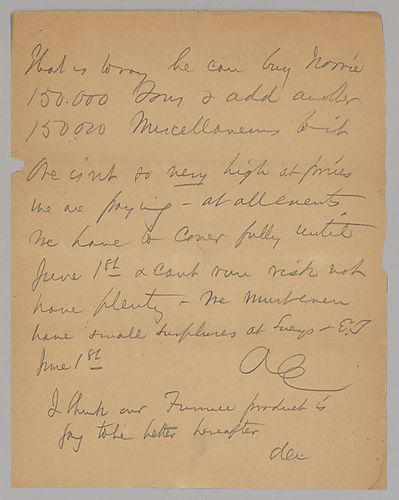 That is to say he can buy Norrie
150.000 Tons & add another
150000 Miscellaneous to it
Ore isn't so very high at prices
we are paying - at all events
We have to cover fully until
June 1st & can't run risk not
have plenty - We must even
have small surpluses at Lucys & E.T
June 1st
AC
I think our Furnace product is
going to be better hereafter